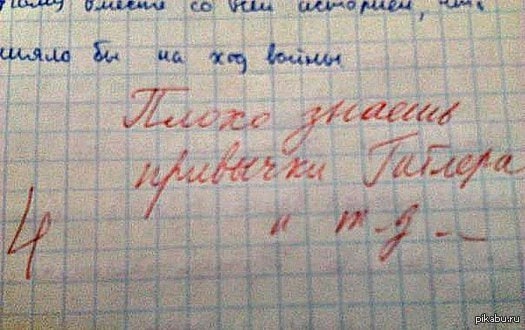 вместе со всей историей,
шяло бы на ход войны
Плохо знаешь
привычки Гитлера
и т-д--
4
pikabu.ru